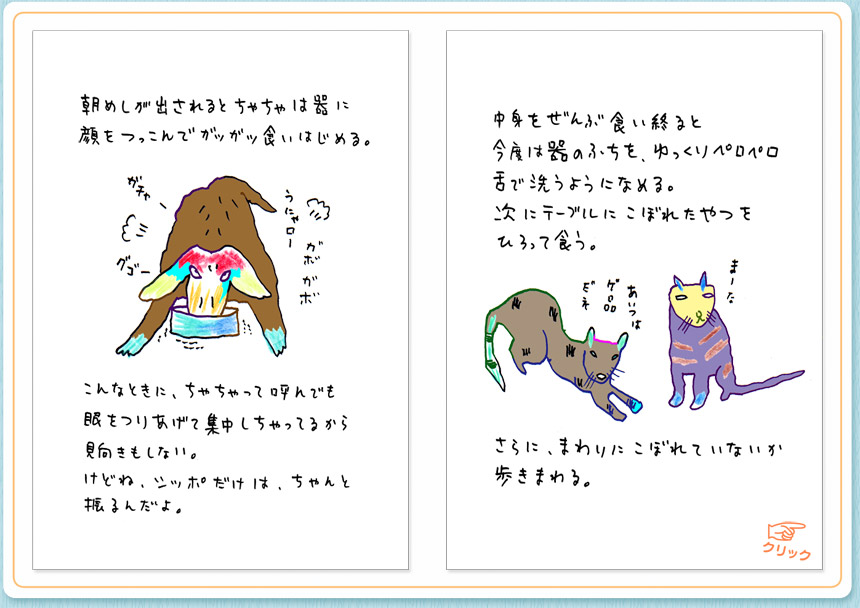 朝めしが出されるとちゃちゃは器に
顔をつっこんでガッガッ食いはじめる。
ガチャ
うにゃロー
グゴー
ガボ ガボ
こんなときに、ちゃちゃって呼んでも
眼をつりあげて集中しちゃってるから
見向きもしない。
けどね、シッポだけは、ちゃんと
振るんだよ。
中身をぜんぶ食い終ると
今度は器のふちを、ゆっくりペロペロ
舌で洗うようになめる。
次にテーブルにこぼれたやつを
ひろって食う。
まーな
あいつは
ゲ品
ビネ
兄
さらに、まわりにこぼれていないか
歩きまわる。
クリック